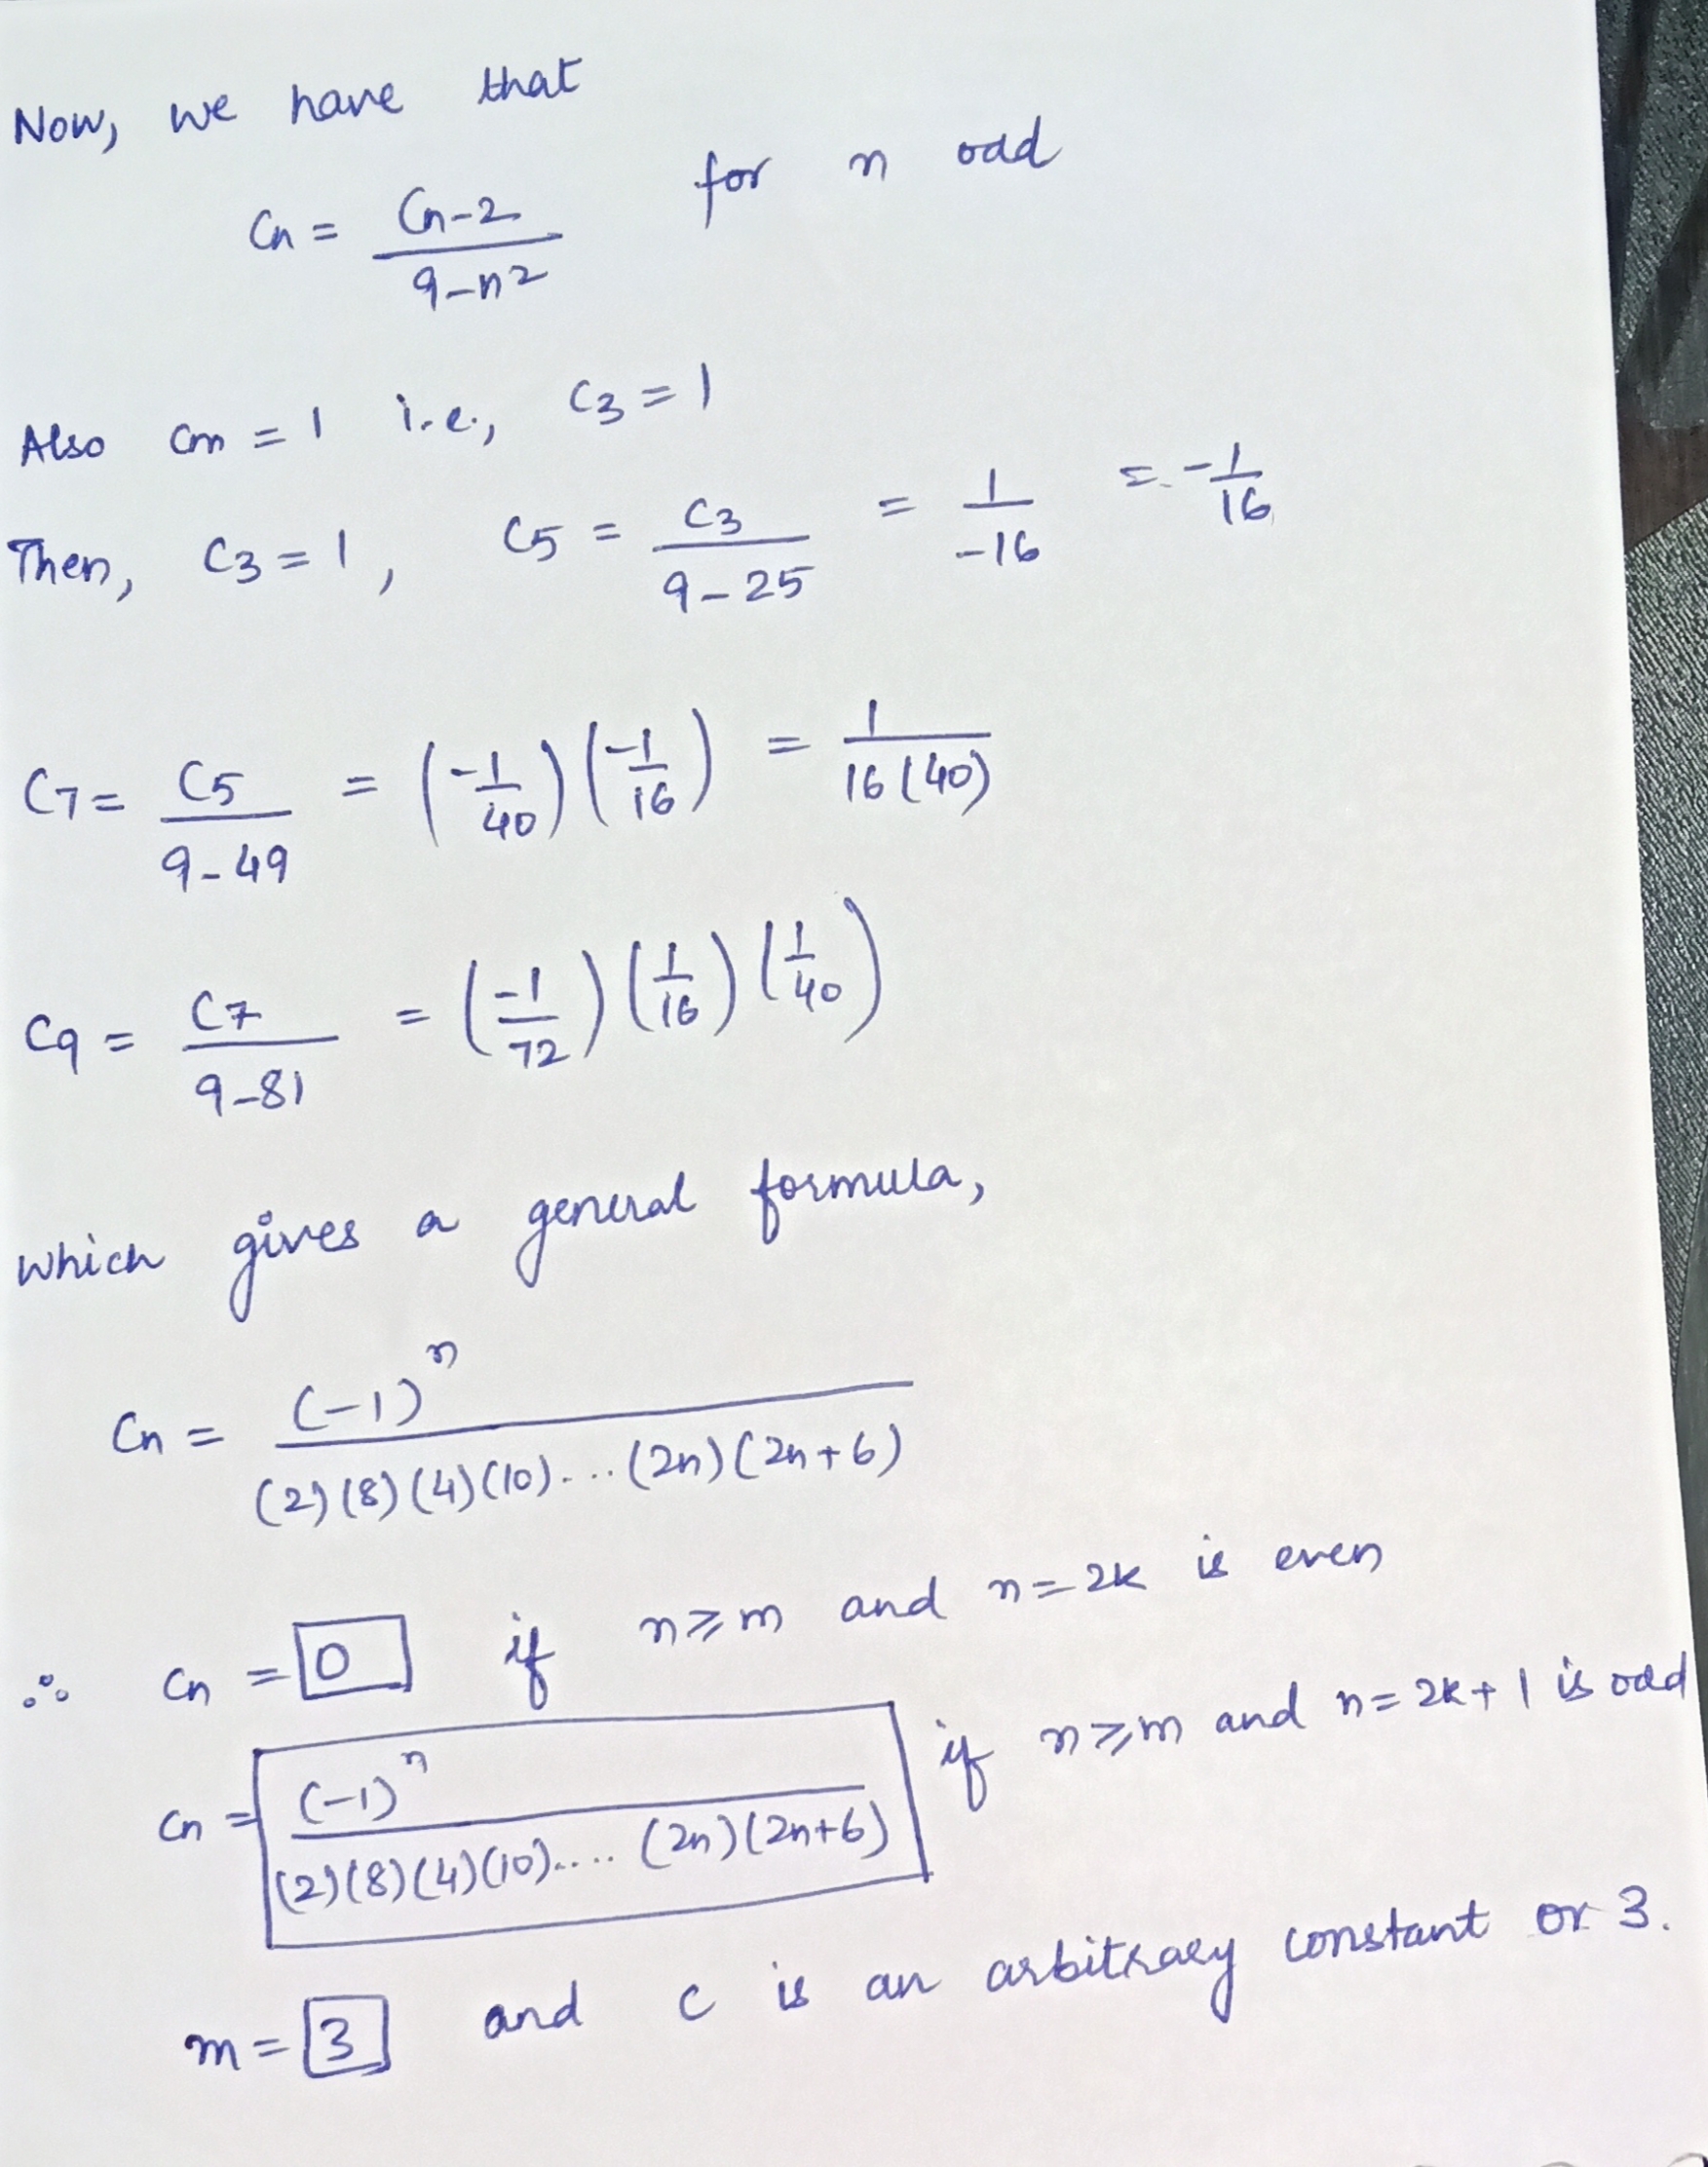 Now, we have that
Cn = Cn-2 / 9-n² for n odd
Also Cm = 1 i.e., C3 = 1
Then, C3 = 1, C5 = C3 / 9-25 = 1 / -16 = -1/16
C7 = C5 / 9-49 = (-1/40) (-1/16) = 1 / 16(40)
C9 = C7 / 9-81 = (-1/72) (1/16) (1/40)
which gives a general formula,
Cn = (-1)ⁿ / (2)(8)(4)(10)....(2n)(2n+6)
∴ Cn = 0 if n⩾m and n=2k is even
Cn = (-1)ⁿ / (2)(8)(4)(10)..... (2n)(2n+6) if n⩾m and n=2k+1 is odd
m = 3 and C is an arbitrary constant or 3.